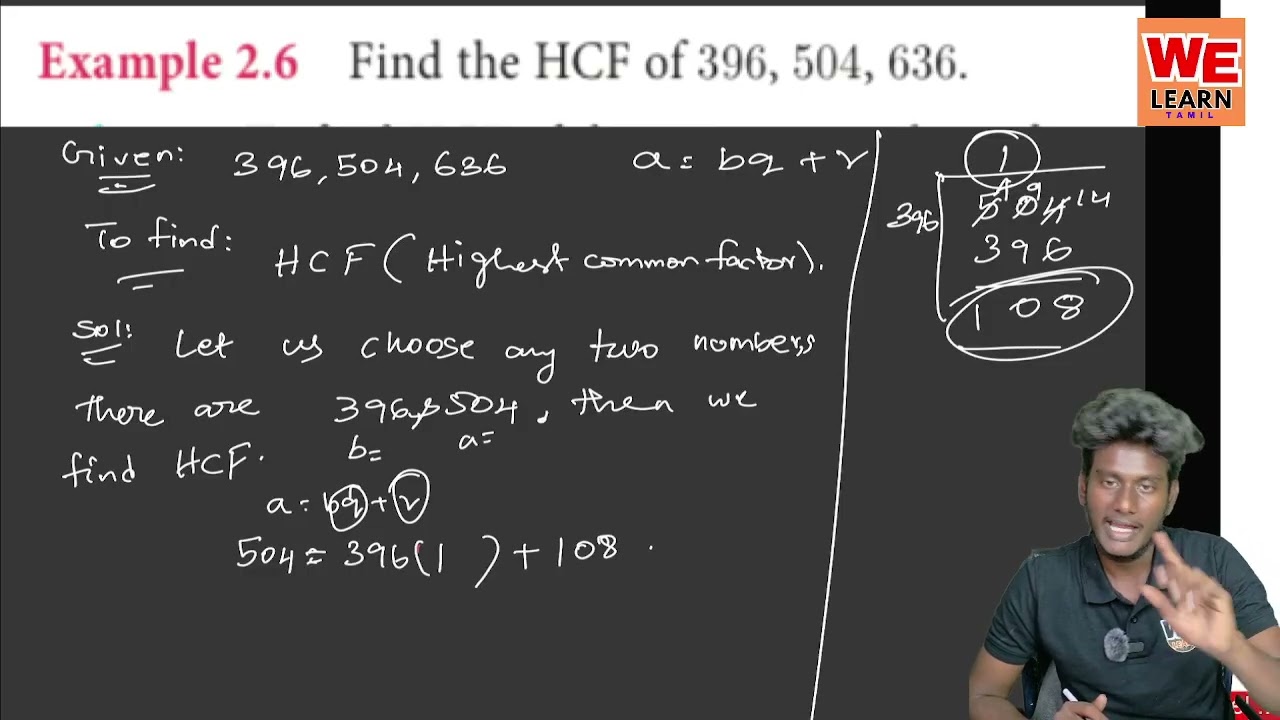 Example 2.6 Find the HCF of 396, 504, 636.
WE
LEARN
TAMIL
Given: 396, 504, 636
a = bq + r
To find: HCF (Highest common factor).
Sol: Let us choose any two numbers
there are 396, 504, then we
b= a=
find HCF.
a = bq + r
504 = 396(1 ) + 108
1
396
504 14
396
108